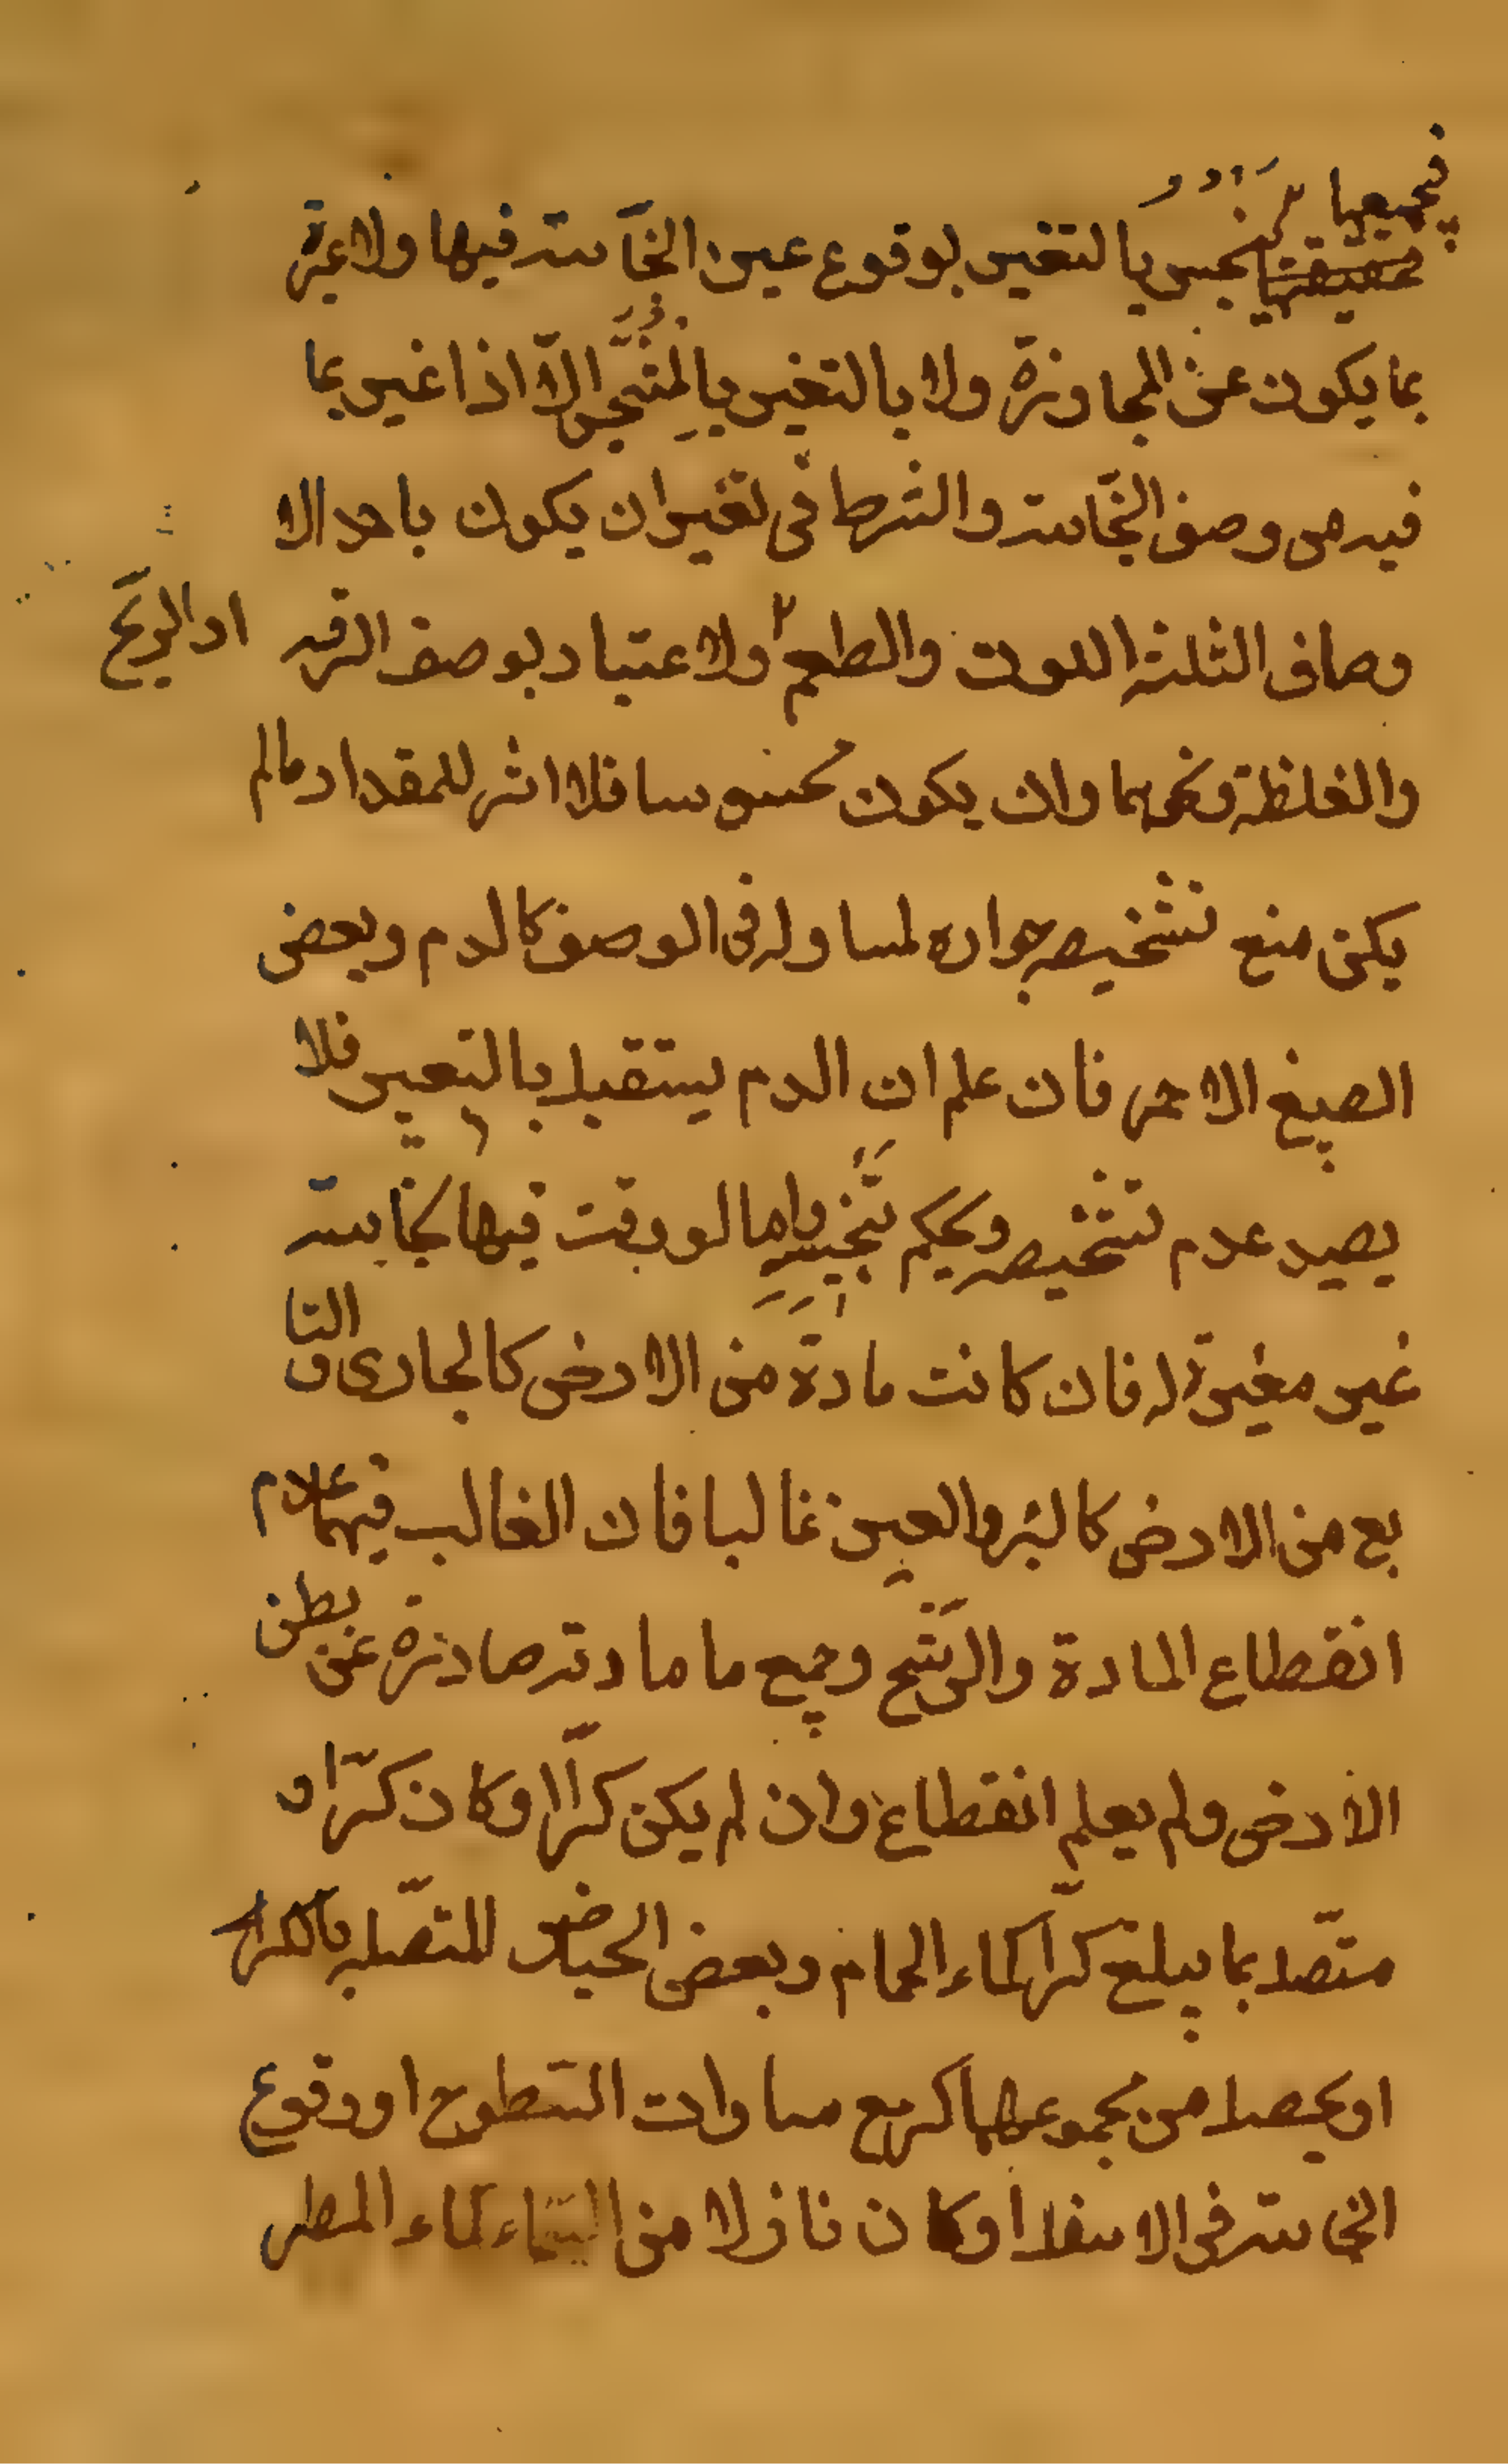 فجميعها
حقيقتها ينجس بالتغير بوقوع عين النجاسته فيها ولا عبرة
بما يكون عن المجاورة ولا بالتغير بالمتنجس الّا اذا غير بما
فيه من وصف النجّاسته والشرط فى تغير ان يكون باحد الا
وصاف الثلثة اللون والطعم ولا عتبار بوصف الرقه
او الريح
والغلظة ونحوهما وان يكون محسوسا فلا اثر للمقدار مالم
يكن منع تشخيصه جواره لمساوله فى الوصف كالدم وبعض
الصبغ الاحمر فان علم ان الدم يستقبل بالتعيير فلا
يصيد عدم تشخيصه ويحكم بتنجيسه واما لو وقت فيها نجاسته
غير مغيرة له فان كانت مادة من الارض كالجارى والنا
بع من الارض كالبئر والعين غالبا فان الغالب فيهما عدم
انقطاع المادة والرشح وجميع ما مادته صادرة عن بطن
الارض ولم يعلم انقطاع وان لم يكن كرّا او كان كرّا او
متصل بما يبلغ كرّا كماء الحمام وبعض الحياض المتصله بالكر
او يحصل من مجموعها كر مع مساوات السّطوح او وقوع
النجاسته فى الاسفل او كان نازلا من السّماء كماء المطر